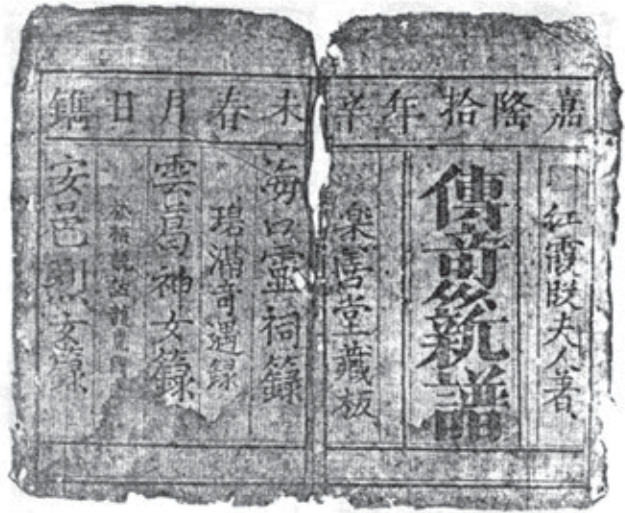 嘉隆拾年辛未春月日鐫
紅霞段夫人著
傳竒新譜
楽善堂藏板
海口靈祠籙
碧溝奇遇録
雲葛神女籙
安邑烈女籙